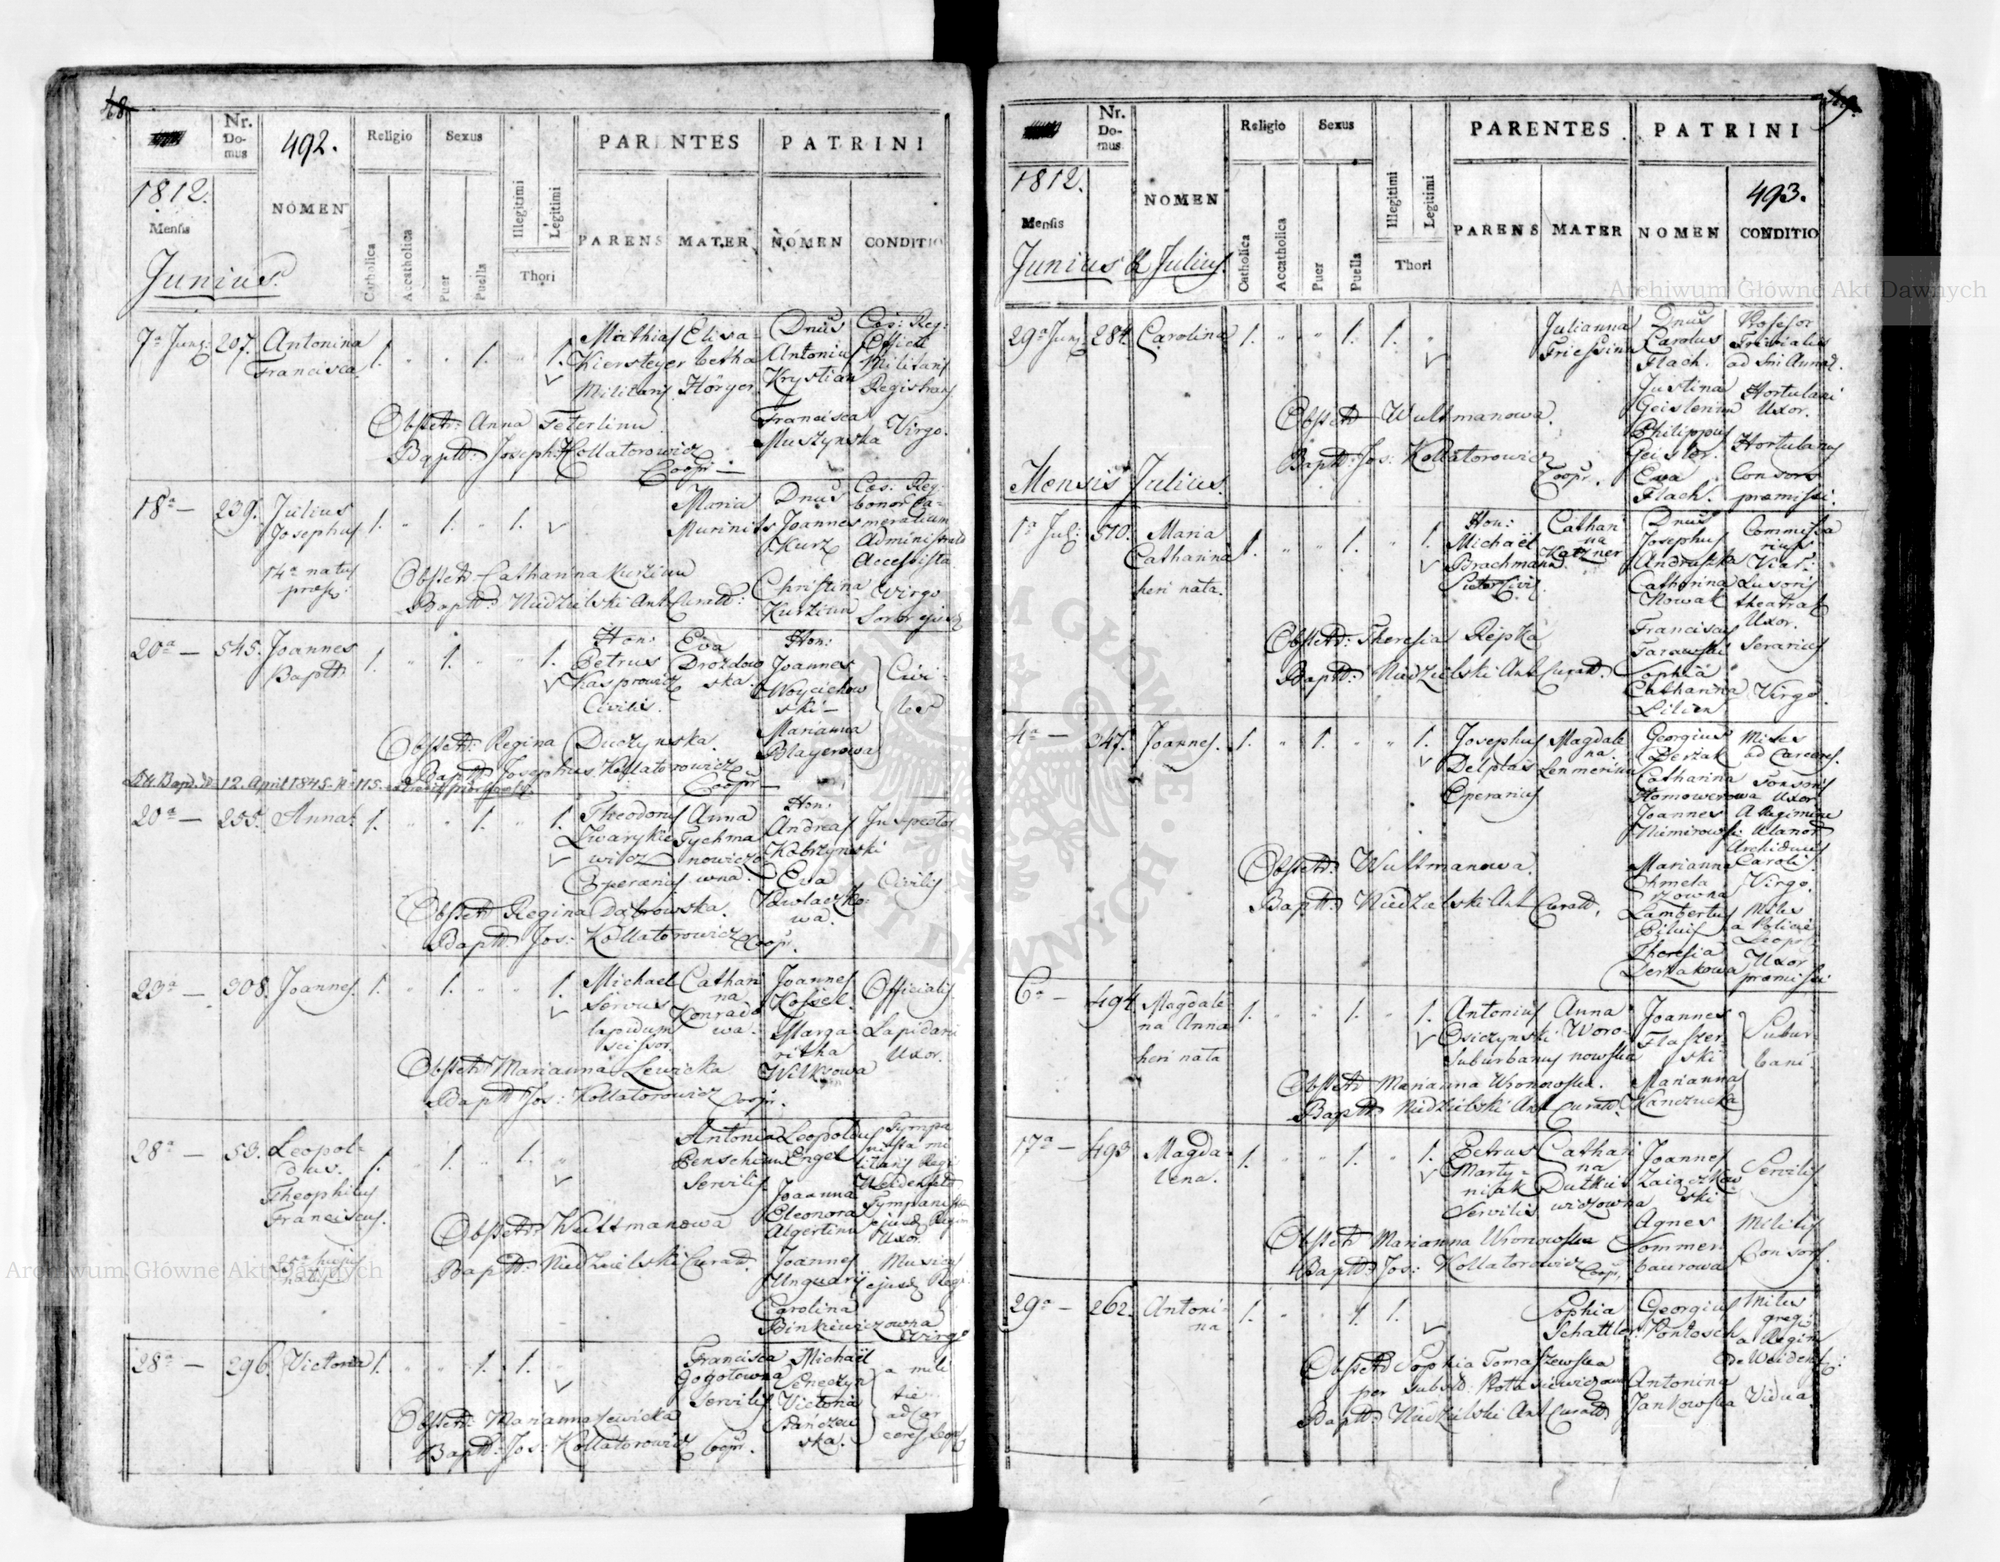 48.
Nr. Domus
492.
Religio
Sexus
PARENTES
PATRINI
1812.
Mensis
Junius.
NOMEN
Catholica
Accatholica
Puer
Puella
Illegitimi
Legitimi
Thori
PARENS
MATER
NOMEN
CONDITIO
7a Junj: 207. Antonina
Francisca
1. " " 1. " 1.
Mathias
Kiersteyer
Militaris
Elisa-
betha
Höryer
Dnus
Antonius
Krystian
Francisca
Muszynska
Registrans
Virgo.
Obstetr: Anna Feterlinn
Baptt: Joseph: Kollatorowicz
Coopr:
18a — 239. Julius
Josephus
14a natus
1. " 1. " 1.
Maria
Dnus
Joannes
Kurz
Christina
Kurzinn
Accessista
Virgo
Soror ejusd
Obstetr Catharina Kurzinn
Baptt: Nidzielski Ant Curatt:
20a — 545. Joannes
Baptt
1. " 1. " " 1.
Hon:
Petrus
Kasprowicz
Civilis.
Eva
Drozdow
ska.
Hon:
Joannes
Woyciechow
ski —
Marianna
Blayerowa
Civi-
les
Obstetr: Regina Duczynska.
Baptt: Josephus Kollatorowicz
Coopr —
12. April 1845. N 115.
20a — 255. Anna. 1. " " 1. " 1.
Theodorus
Zwarykie
wicz
Operarius
Anna
Tychma
nowiczo
wna.
Hon:
Andreas
Kobrzynski
Eva
Pawlaczko-
wa.
Inspector
Civilis
Obstetr Regina Dabrowska.
Baptt: Jos: Kollatorowicz Coopr.
23a — 308. Joannes. 1. " 1. " " 1.
Michael
Servus
lapidum
scissor
Cathari
na
Konrado
wa.
Joannes
Kossel.
Marga-
ritha
Wilkzowa
Officialis.
Lapidarii
Uxor.
Obstetr Marianna Lewicka
Baptt Jos: Kollatorowicz Coopr.
28a — 53. Leopol-
dus.
Theophilus
Franciscus.
25a hujus
natus
1. " 1. " 1. "
Antonia
Servilis
Leopoldus
Engel
Joanna
Eleonora
Algertinn
Joannes
Unguarij
Carolina
Binkiewiczowna
Tympa
nista mi
litaris Regi
Weidenfeld
Tympanistae
ejusd Regim
Uxor.
Musicus
ejusd Regi
Virgo
Obstetr: Wultmanowa
Baptt: Nidzielski Curatt.
28a — 296. Victoria 1. " " 1. 1. "
Francisca
Gogotowna
Servilis
Michael
Victoria
Stanczew
ska.
a mili
tie..
ad Car
ceres Leopol
Obstetr: Marianna Lewicka
Baptt: Jos: Kollatorowicz Coopr.
49.
Nr. Domus
Religio
Sexus
PARENTES
PATRINI
1812.
493.
Mensis
Junius & Julius.
NOMEN
Catholica
Accatholica
Puer
Puella
Illegitimi
Legitimi
Thori
PARENS
MATER
NOMEN
CONDITIO
29a Junj 284. Carolina 1. " " 1. 1. "
Julianna
Friessina
Dnus
Carolus
Flach.
Justina
Geislerinn
Philippus
Geisler.
Eva
Flach.
Professor
Trivialis
ad Sm Annam.
Hortulani
Uxor.
Hortulanus
Consors
praemissi.
Obstetr Wultmanowa.
Baptt: Jos: Kollatorowicz
Coopr.
Mensis Julius.
1a Jul: 570. Maria
Catharina
heri nata.
1. " " 1. " 1.
Hon:
Michaël
Brachmann
Cathari
na
Katzner
Dnus
Josephus
Andruszka
Catharina
Nowak
Franciscus
Tarawski
Sophia
Catharina
Lilien
Commissa
rius
Viar:
Lusoris
theatral
Uxor.
Serarius
Virgo.
Obstetr: Theresia Repka
Baptt: Nidzielski Ant Curatt.
4a — 347. Joannes. 1. " 1. " " 1.
Josephus
Delptas
Operarius
Magdale
na
Lenmerika
Georgius
Derzak
Catharina
Homowerowa
Joannes
Niemirowski
Marianna
Chmela
rzowna
Lambertus
Theresia
Derzakowa
Miles
ad Carceres.
Tonsoris
Uxor.
a Regimine
Ulanor
Archiducis
Caroli.
Virgo.
Milis
a Policie
Leopol
Uxor
praemissi
Obstetr: Wultmanowa.
Baptt: Nidzielski Ant Curatt.
6a — 494 Magdale-
na Anna
heri nata
1. " " 1. " 1.
Antonius
Osiczynski
Suburbanus
Anna
Woro-
nowska
Joannes
Flaszer-
ski
Marianna
Kanczucka
Subur
bani.
Obstetr Marianna Woronowska.
Baptt: Nidzielski Ant Curatt.
17a — 493 Magda-
lena.
1. " " 1. " 1.
Petrus
Marty-
niak
Servilis
Cathari
na
Dutkie
wiczowna
Joannes
Zaiaczkow
ski
Agnes
Sommer
baurowa
Servilis.
Militis
Consors.
Obstetr Marianna Woronowska
Baptt: Jos: Kollatorowicz Coopr.
29a — 262. Antoni-
na
1. " " 1. 1.
Sophia
Schattler.
Georgius
Pontosch
Antonina
Jankowska
Miles
greg:
a Regim
de Weidenf:
Vidua.
Obstetr Sophia Tomaszewska
per subst: Rotasiewiczowa
Baptt: Nidzielski Ant Curatt
Archiwum Główne Akt Dawnych
Archiwum Główne Akt Dawnych
ARCHIWUM GŁÓWNE AKT DAWNYCH